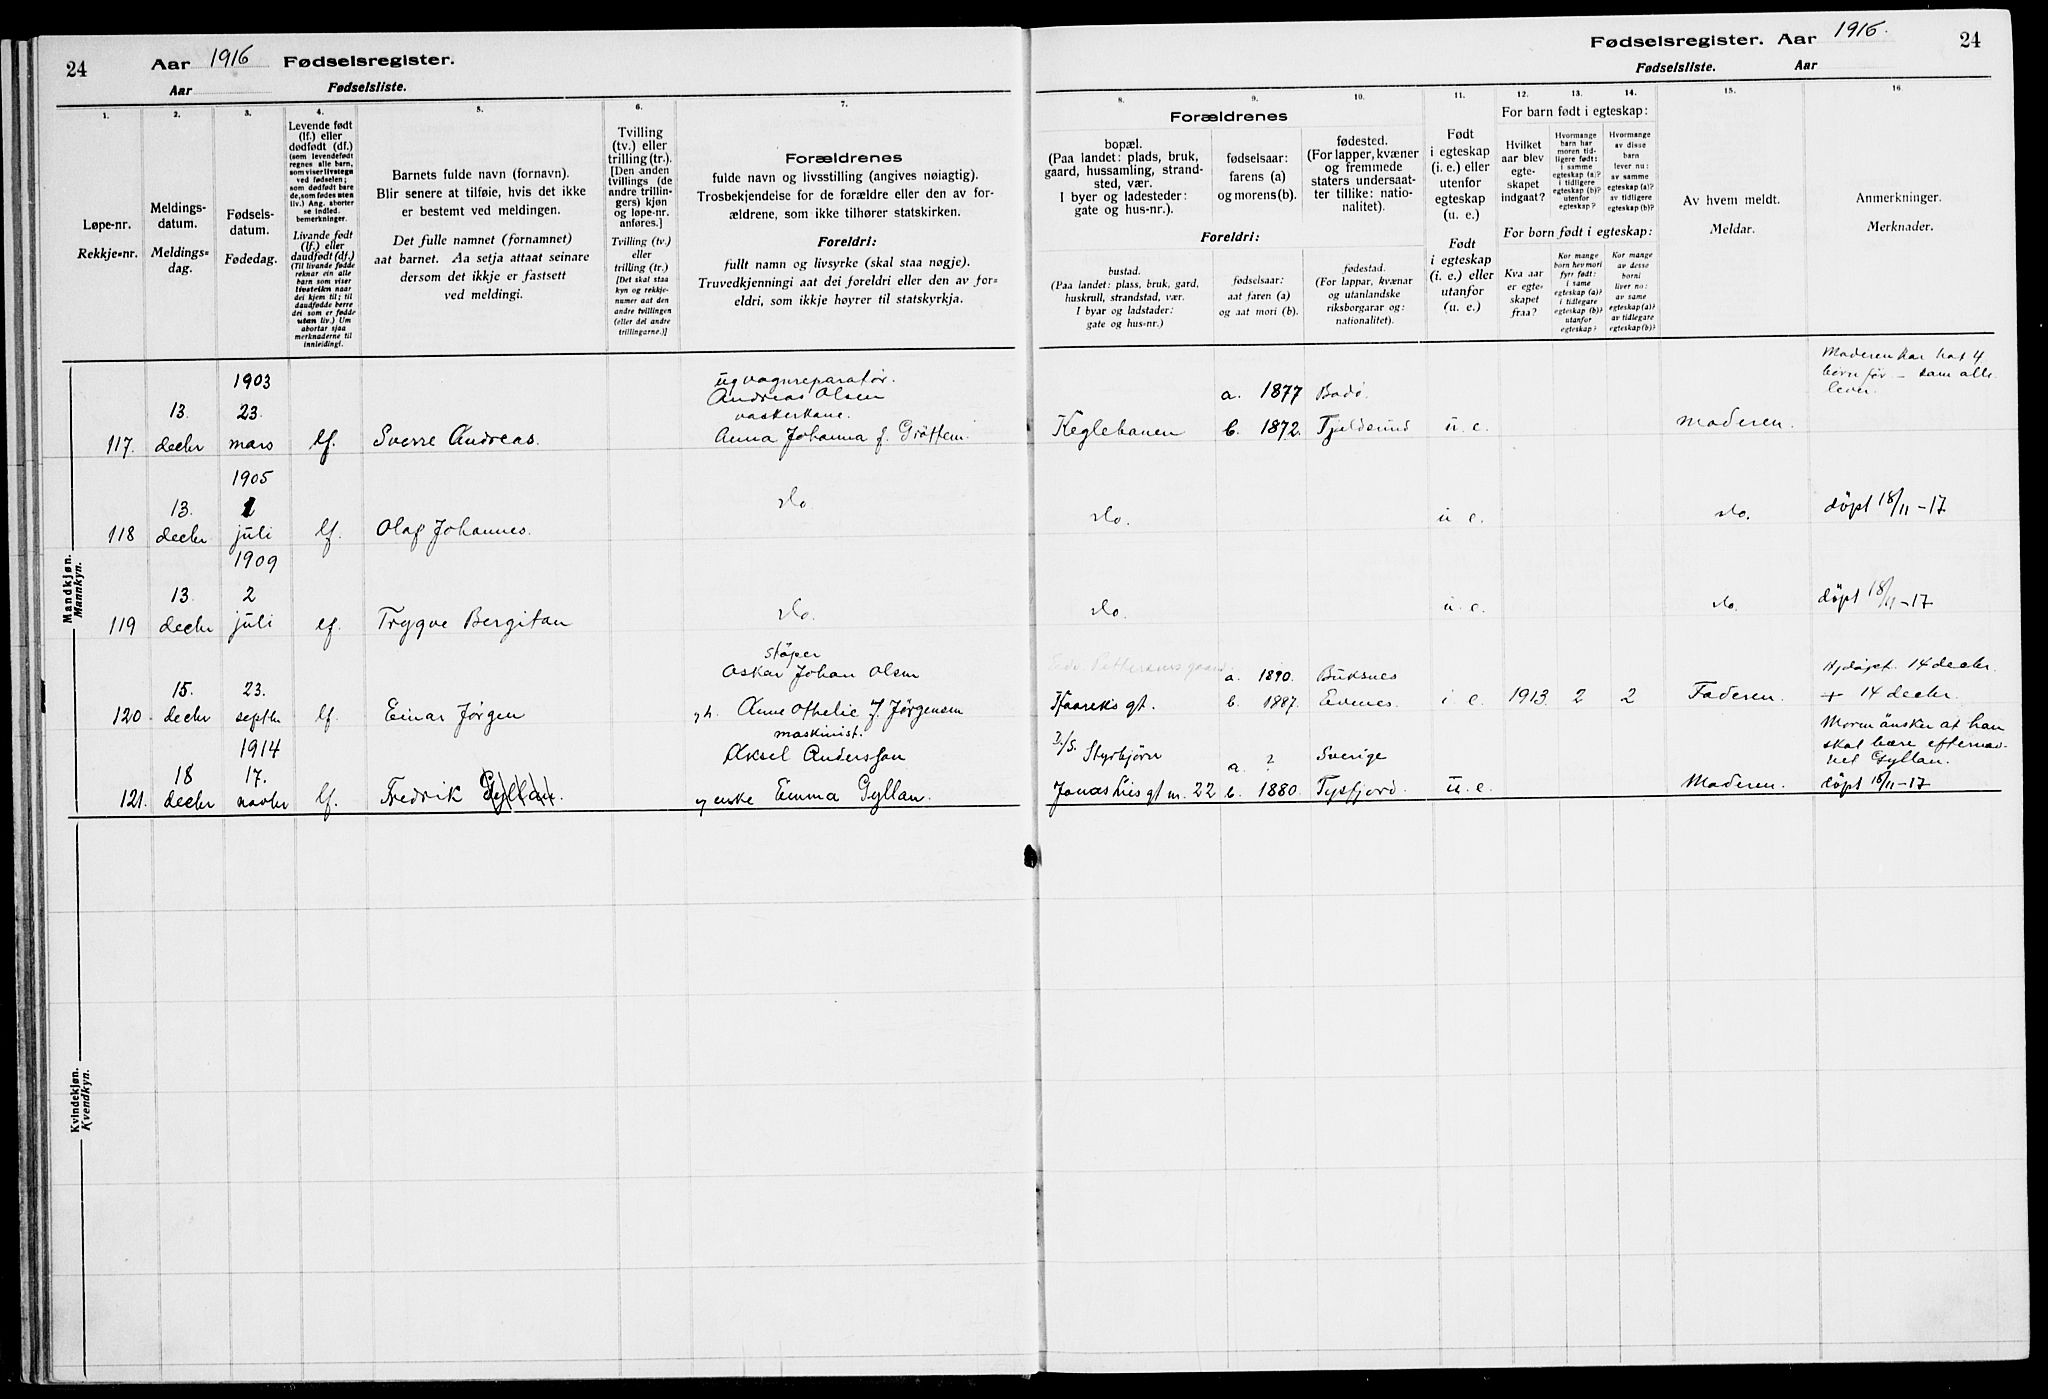 24
Aar 1916 Fødselsregister.
Aar Fødselsliste.
1. 2. 3. 4. 5. 6. 7.
Løpe-nr.
Rekkje-nr.
Meldings-
datum.
Meldings-
dag.
Fødsels-
datum.
Fødedag.
Levende født
(lf.) eller
dødfødt (df.)
(som levendefødt
regnes alle barn,
som viser livstegn
ved fødselen;
som dødfødt bare
de, som fødes uten
liv.) Ang. aborter
se indled.
bemerkninger.
Livande født
(lf.) eller
daudfødt (df.)
(Til livande fødde
reknar ein alle
barn som viser
livsteikn naar
dei kjem til; til
daudfødde berre
dei som er fødde
utan liv.) Um
abortar sjaa
merknaderne til
innleidingi.
Barnets fulde navn (fornavn).
Blir senere at tilføie, hvis det ikke
er bestemt ved meldingen.
Det fulle namnet (fornamnet)
aat barnet. Aa setja attaat seinare
dersom det ikkje er fastsett
ved meldingi.
Tvilling
(tv.) eller
trilling (tr.).
[Den anden
tvillings (de
andre trillin-
gers) kjøn
og løpe-nr.
anføres.]
Tvilling (tv.)
eller
trilling (tr.)
[Det skal staa
kyn og rekkje-
numer aat den
andre tvillingen
(eller dei andre
trillingarne.)]
Forældrenes
fulde navn og livsstilling (angives nøiagtig).
Trosbekjendelse for de forældre eller den av for-
ældrene, som ikke tilhører statskirken.
Foreldri:
fullt namn og livsyrke (skal staa nøgje).
Truvedkjenningi aat dei foreldri eller den av for-
eldri, som ikkje høyrer til statskyrkja.
Mandkjøn.
Mannkyn.
1903
13. 23.
117. decbr mars lf. Sverre Andreas.
ugvognreparatør.
Andreas Olsen
vaskerkone.
Anna Johanna f. Grøttem.
1905
13. 1
118 decbr juli lf. Olaf Johannes.
do.
1909
13. 2
119 decbr juli lf. Trygve Bergitan
do.
støper
Oskar Johan Olsen
15. 23.
120 decbr septbr lf. Einar Jørgen
Anne Othelie f. Jørgensen
1914
maskinist.
Aksel Andersson
18 17.
121. decbr novbr lf. Fredrik Gyllan.
enke Emma Gyllan.
Kvindekjøn.
Kvendkyn.
Fødselsregister. Aar 1916.
24
Fødselsliste. Aar
8. 9. 10. 11. 12. 13. 14. 15. 16.
Forældrenes
bopæl.
(Paa landet: plads, bruk,
gaard, hussamling, strand-
sted, vær.
I byer og ladesteder:
gate og hus-nr.).
fødselsaar:
farens (a)
og morens (b).
fødested.
(For lapper, kvæner
og fremmede
staters undersaat-
ter tillike: natio-
nalitet).
Foreldri:
bustad.
(Paa landet: plass, bruk, gard,
huskrull, strandstad, vær.
I byar og ladstader:
gate og hus-nr.)
fødselsaar:
aat faren (a)
og aat mori (b).
fødestad.
(For lappar, kvænar
og utanlandske
riksborgarar og:
nationalitet).
Født
i egteskap
(i. e.) eller
utenfor
egteskap
(u. e.)
Født
i egteskap
(i. e.) eller
utanfor
(u. e.)
For barn født i egteskap:
Hvilket
aar blev
egte-
skapet
indgaat?
Hvormange
barn har
moren tid-
ligere født:
i samme
egteskap (a)?
i tidligere
egteskap (b)?
utenfor
egteskap?
Hvormange
av disse
barn
lever nu:
av samme
egteskap (a)?
av tidligere
egteskap (b)?
For born født i egteskap:
Kva aar
er egte-
skapet
fraa?
Kor mange
born hev mori
fyrr født:
i same
egteskap (a)?
i tidlegare
egteskap (b)?
utanfor
egteskap?
Kor mange
av desse
borni
liver no:
av same
egteskap (a)?
av tidlegare
egteskap (b)?
Av hvem meldt.
Meldar.
Anmerkninger.
Merknader.
a. 1877 Bodø.
Keglebanen b. 1872. Tjeldsund u. e. Moderen.
Moderen har hat 4
børn før – som alle
lever.
do. u e. do. døpt 18/11–17
do. u. e. do. døpt 18/11–17
a. 1890. Buksnes
Haareks gt. b. 1887. Evenes. i e. 1913. 2 2 Faderen.
Hjdøpt 14 decbr.
+ 14 decbr.
D/S. Styrbjørn a. ? Sverige
Jonas Lies gt nr. 22 b. 1880. Tysfjord. u. e. Moderen.
Moren ønsker at han
skal bære efternav-
net Gyllan.
døpt 18/11–17